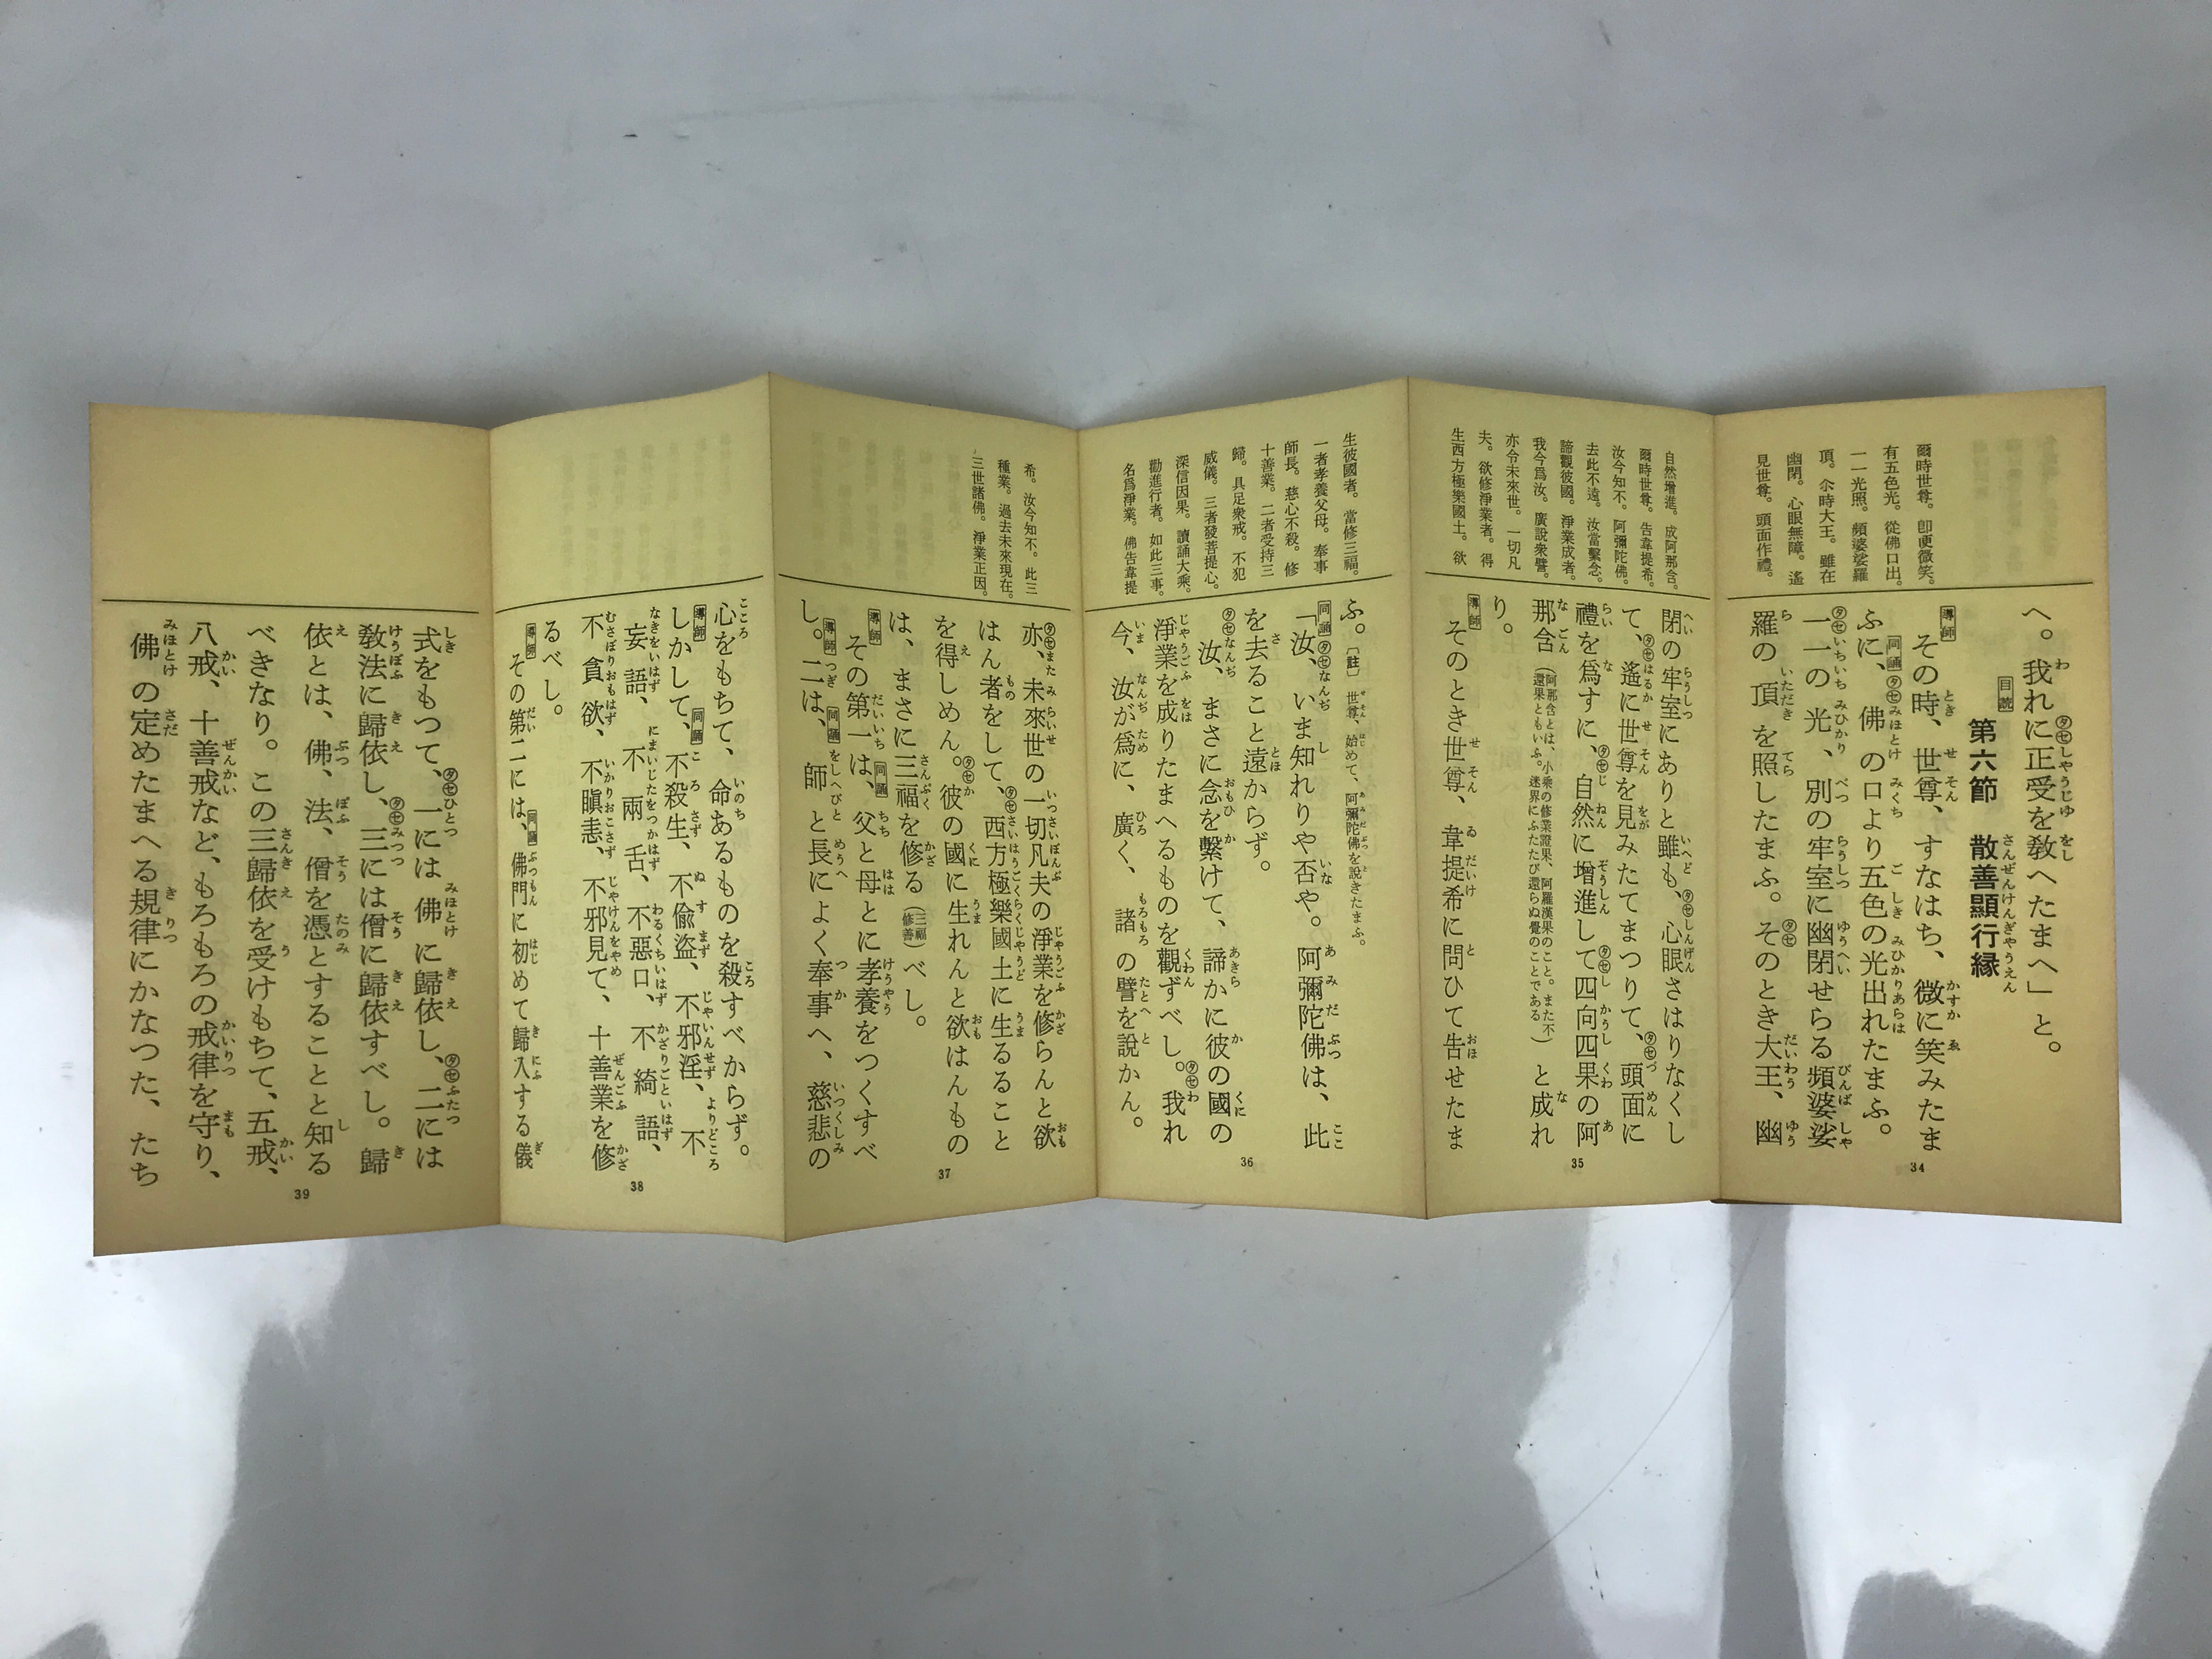 爾時世尊。卽便微笑。
有五色光。從佛口出。
一一光照。頻婆娑羅
頂。尒時大王。雖在
幽閉。心眼無障。遙
見世尊。頭面作禮。
へ。我れに正受を敎へたまへ」と。
目読
第六節 散善顯行緣
導師 その時、世尊、すなはち、微に笑みたま
ふに、同誦佛の口より五色の光出れたまふ。
一一の光、別の牢室に幽閉せらる頻婆娑
羅の頂を照したまふ。そのとき大王、幽
34
自然增進。成阿那含。
爾時世尊。告韋提希。
汝今知不。阿彌陀佛。
去此不遠。汝當繫念。
諦觀彼國。淨業成者。
我今爲汝。廣說衆譬。
亦令未來世。一切凡
夫。欲修淨業者。得
生西方極樂國土。欲
閉の牢室にありと雖も、心眼さはりなくし
て、遙に世尊を見みたてまつりて、頭面に
禮を爲すに、自然に增進して四向四果の阿
那含(阿那含とは、小乘の修業證果、阿羅漢果のこと。また不還果ともいふ。迷界にふたたび還らぬ覺のことである)と成れ
り。
導師 そのとき世尊、韋提希に問ひて告せたま
35
生彼國者。當修三福。
一者孝養父母。奉事
師長。慈心不殺。修
十善業。二者受持三
歸。具足衆戒。不犯
威儀。三者發菩提心。
深信因果。讀誦大乘。
勸進行者。如此三事。
名爲淨業。佛告韋提
ふ。〔註〕世尊、始めて、阿彌陀佛を說きたまふ。
同誦「汝、いま知れりや否や。阿彌陀佛は、此
を去ること遠からず。
汝、まさに念を繫けて、諦かに彼の國の
淨業を成りたまへるものを觀ずべし。我れ
今、汝が爲に、廣く、諸の譬を說かん。
36
希。汝今知不。此三
種業。過去未來現在。
三世諸佛。淨業正因。
亦、未來世の一切凡夫の淨業を修らんと欲
はん者をして、西方極樂國土に生るること
を得しめん。彼の國に生れんと欲はんもの
は、まさに三福を修る(三福修善)べし。
導師 その第一は、同誦父と母とに孝養をつくすべ
し。導師二は、同誦師と長によく奉事へ、慈悲の
37
心をもちて、命あるものを殺すべからず。
導師しかして、同誦不殺生、不偸盜、不邪淫、不
妄語、不兩舌、不惡口、不綺語、
不貪欲、不瞋恚、不邪見て、十善業を修
るべし。
導師 その第二には、同誦佛門に初めて歸入する儀
38
式をもつて、一には佛に歸依し、二には
敎法に歸依し、三には僧に歸依すべし。歸
依とは、佛、法、僧を憑とすることと知る
べきなり。この三歸依を受けもちて、五戒、
八戒、十善戒など、もろもろの戒律を守り、
佛の定めたまへる規律にかなつた、たち
39